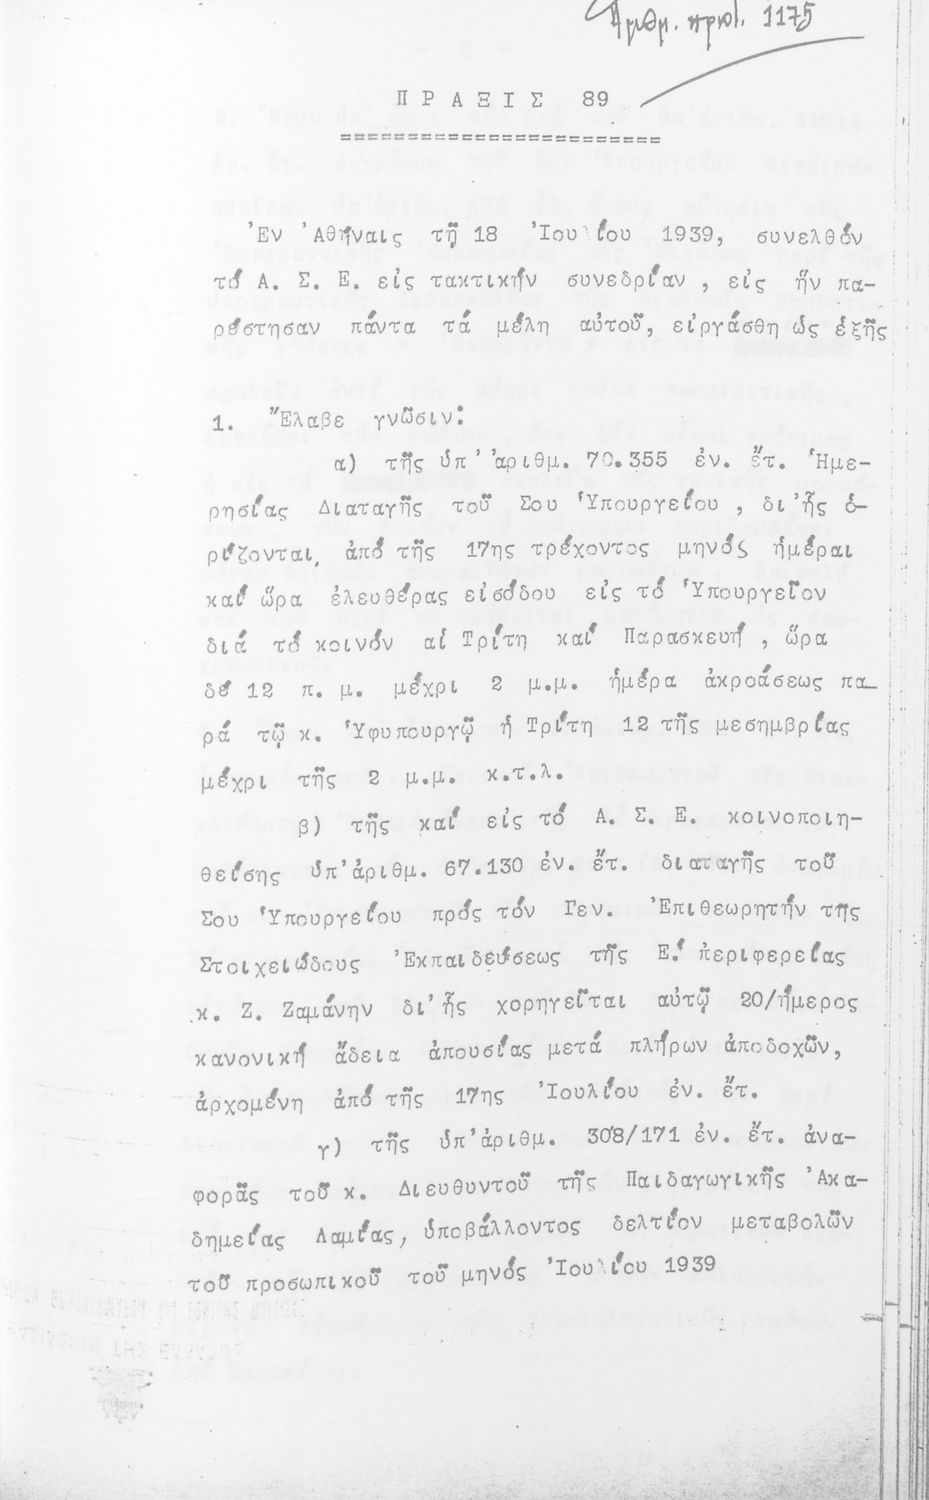 Αριθμ. πρωτ. 1175
ΠΡΑΞΙΣ 89
=========================
Ἐν Ἀθήναις τῇ 18 Ἰουλίου 1939, συνελθόν
τό Α. Σ. Ε. εἰς τακτικήν συνεδρίαν, εἰς ἥν πα-
ρέστησαν πάντα τά μέλη αὐτοῦ, εἰργάσθη ὡς ἑξῆς
1. Ἔλαβε γνῶσιν:
α) τῆς ὑπ' ἀριθμ. 70.355 ἐν. ἔτ. Ἡμε-
ρησίας Διαταγῆς τοῦ Σου Ὑπουργείου, δι' ἧς ὁ-
ρίζονται, ἀπό τῆς 17ης τρέχοντος μηνός ἡμέραι
καί ὥρα ἐλευθέρας εἰσόδου εἰς τό Ὑπουργεῖον
διά τό κοινόν αἱ Τρίτη καί Παρασκευή, ὥρα
δέ 12 π. μ. μέχρι 2 μ.μ. ἡμέρα ἀκροάσεως πα_
ρά τῷ κ. Ὑφυπουργῷ ἡ Τρίτη 12 τῆς μεσημβρίας
μέχρι τῆς 2 μ.μ. κ.τ.λ.
β) τῆς καί εἰς τό Α. Σ. Ε. κοινοποιη-
θείσης ὑπ' ἀριθμ. 67.130 ἐν. ἔτ. διαταγῆς τοῦ
Σου Ὑπουργείου πρός τόν Γεν. Ἐπιθεωρητήν τῆς
Στοιχειώδους Ἐκπαιδεύσεως τῆς Ε! περιφερείας
κ. Ζ. Ζαμάνην δι' ἧς χορηγεῖται αὐτῷ 20/ήμερος
κανονική ἄδεια ἀπουσίας μετά πλήρων ἀποδοχῶν,
ἀρχομένη ἀπό τῆς 17ης Ἰουλίου ἐν. ἔτ.
γ) τῆς ὑπ' ἀριθμ. 308/171 ἐν. ἔτ. ἀνα-
φορᾶς τοῦ κ. Διευθυντοῦ τῆς Παιδαγωγικῆς Ἀκα-
δημείας Λαμίας, ὑποβάλλοντος δελτίον μεταβολῶν
τοῦ προσωπικοῦ τοῦ μηνός Ἰουλίου 1939